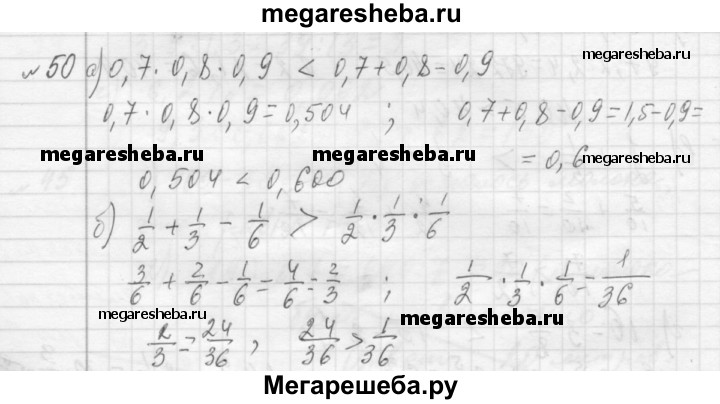 megaresheba.ru
№ 50 а) 0,7 · 0,8 · 0,9 < 0,7 + 0,8 - 0,9 megaresheba.ru
0,7 · 0,8 · 0,9 = 0,504 ; 0,7 + 0,8 - 0,9 = 1,5 - 0,9 =
megaresheba.ru megaresheba.ru > = 0,6 megaresheba.ru
0,504 < 0,600
б) 1/2 + 1/3 - 1/6 > 1/2 · 1/3 · 1/6
3/6 + 2/6 - 1/6 = 4/6 = 2/3 ; 1/2 · 1/3 · 1/6 = 1/36
megaresheba.ru megaresheba.ru
2/3 = 24/36 , 24/36 > 1/36
Мегарешеба.ру